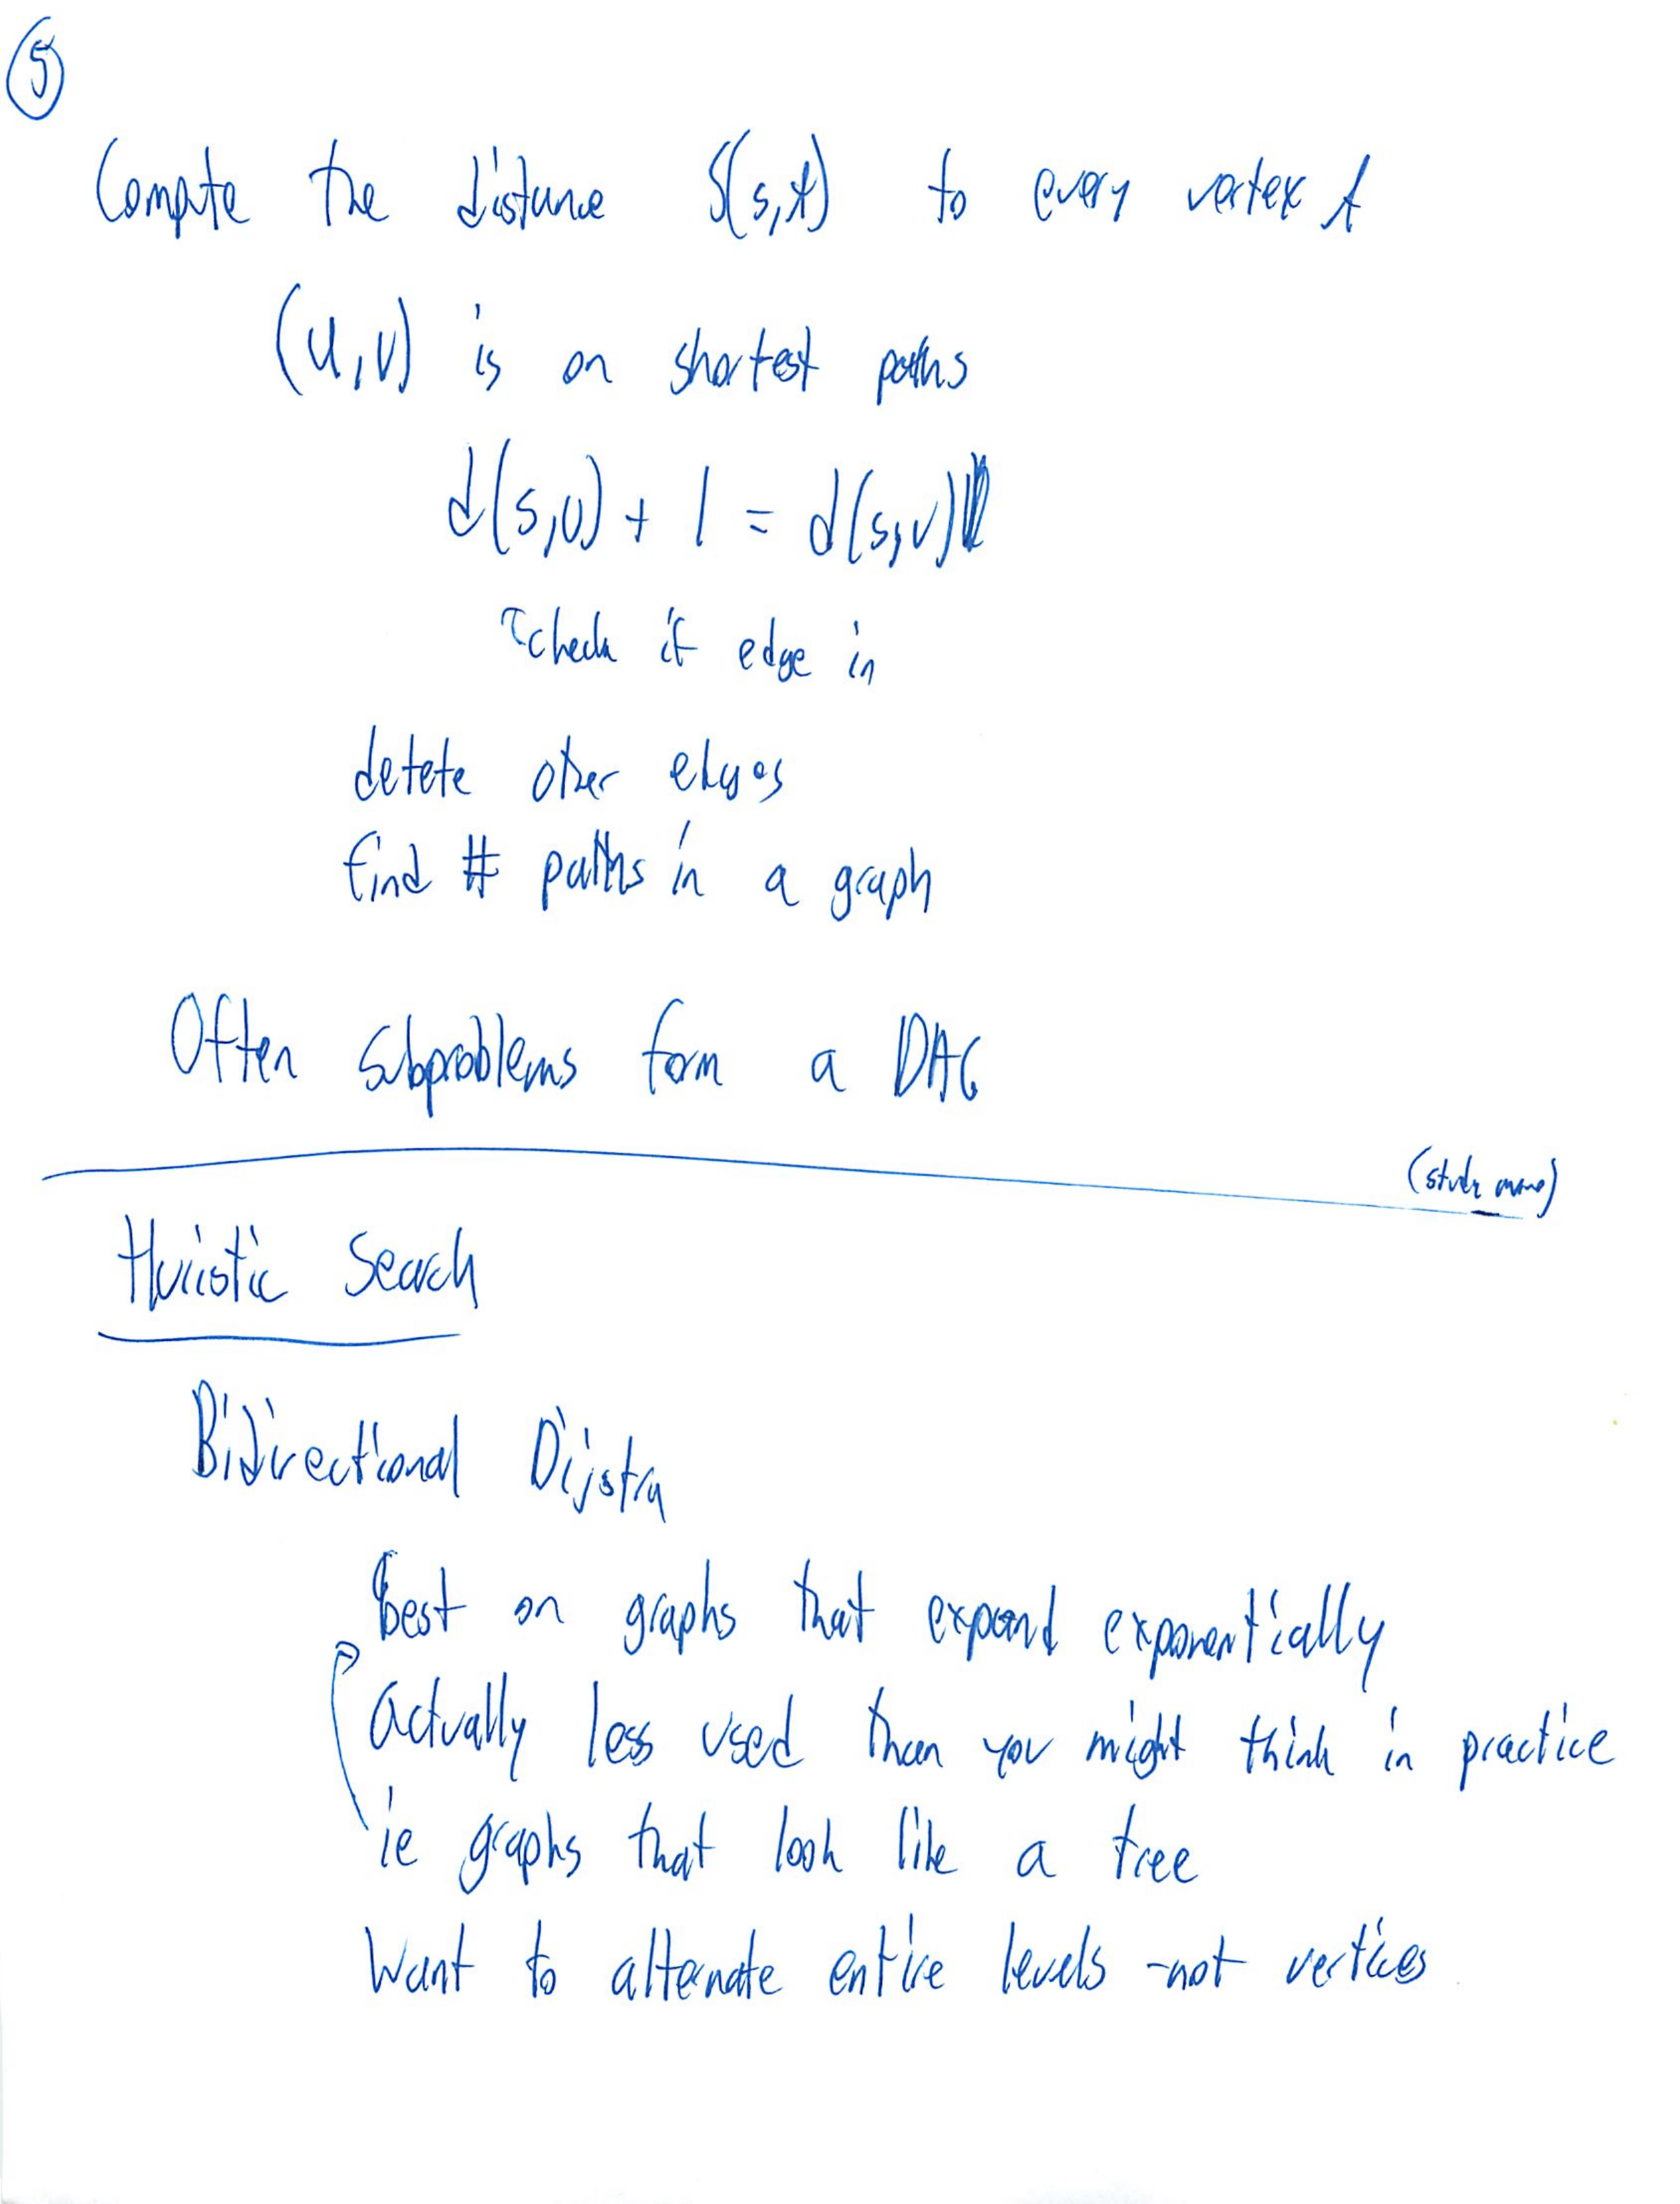 5
Compute the distance δ(s,t) to every vertex t
(u,v) is on shortest paths
d(s,u) + 1 = d(s,v)
↑check if edge in
detete other edges
find # paths in a graph
Often subproblems form a DAG
(study more)
Huristic Search
Bidirectional Dijstra
best on graphs that expand exponentially
actually less used than you might think in practice
ie graphs that look like a tree
Want to alternate entire levels - not vertices